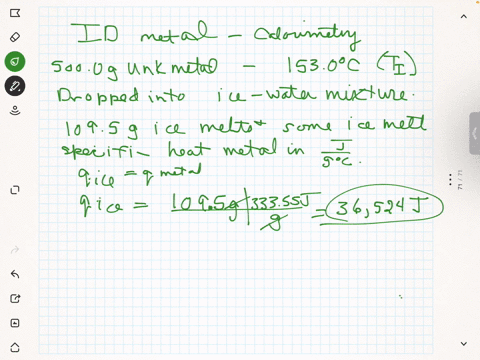 ID metal - Calorimetry
500.0g Unk metal - 153.0°C (TI)
Dropped into ice-water mixture.
109.5 g ice melts + some ice melt
specifi- heat metal in J/g°C.
q ice = q metal
q ice = 109.5g | 333.55J / g = 36,524 J